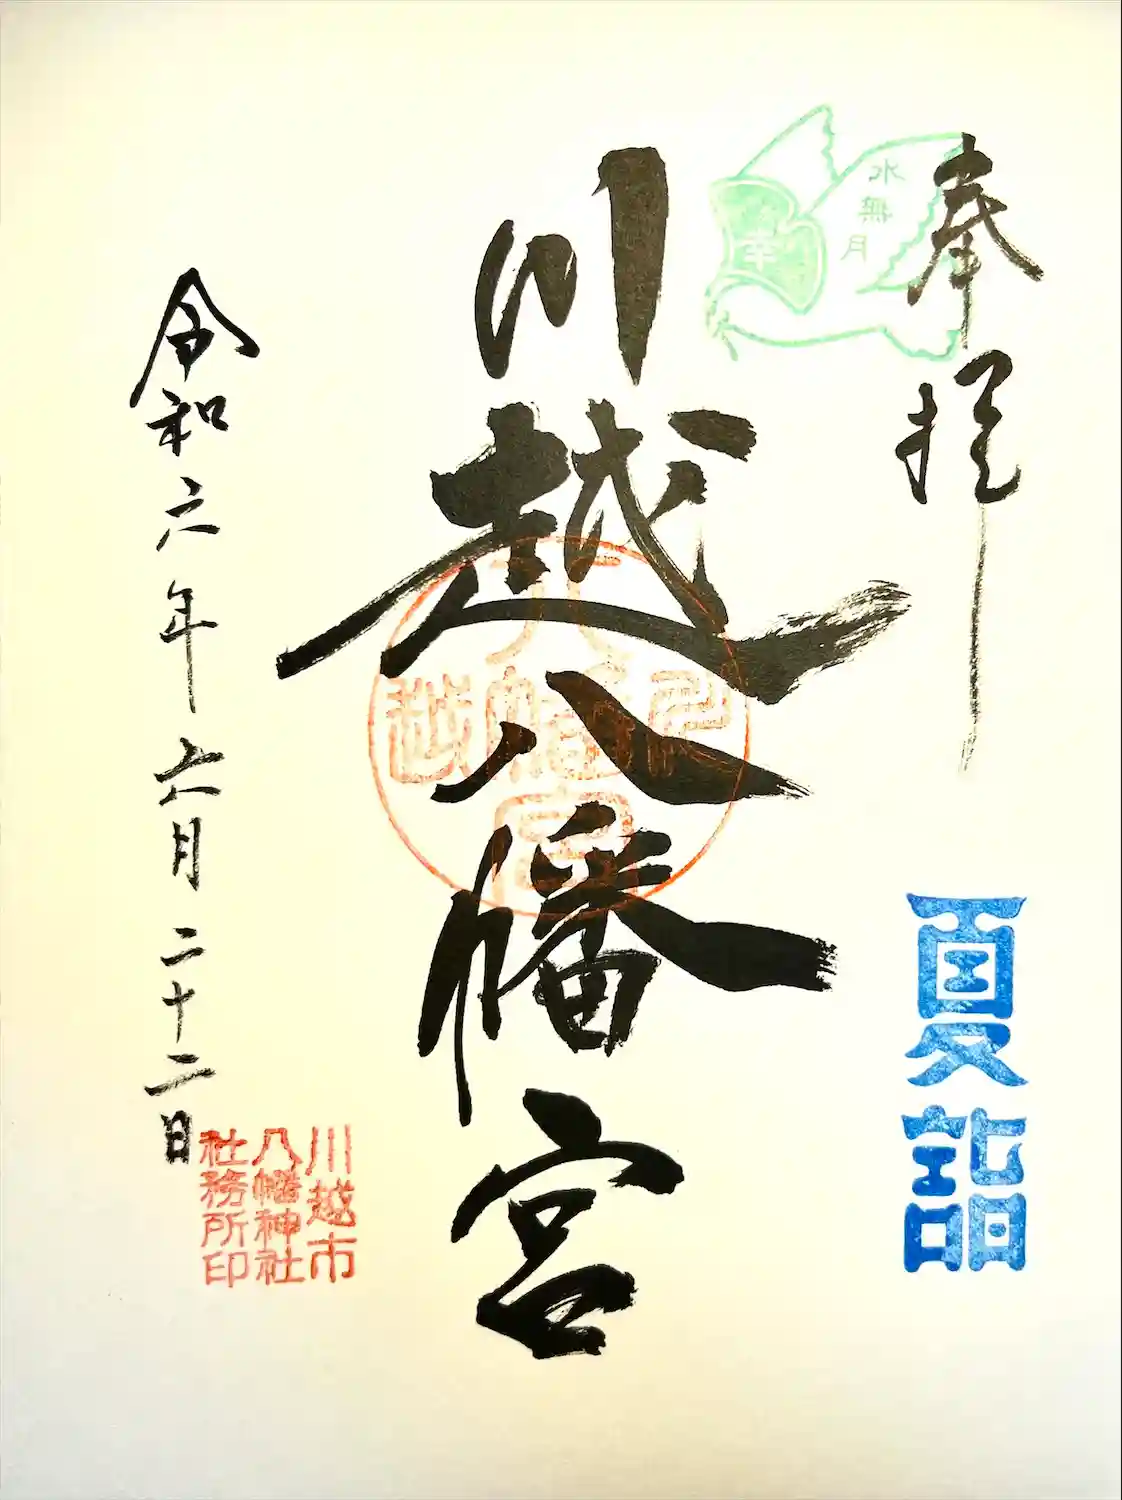 奉拝
水無月
幸
夏詣
川越八幡宮
八幡宮
川越
川越市
八幡神社
社務所印
令和六年六月二十二日